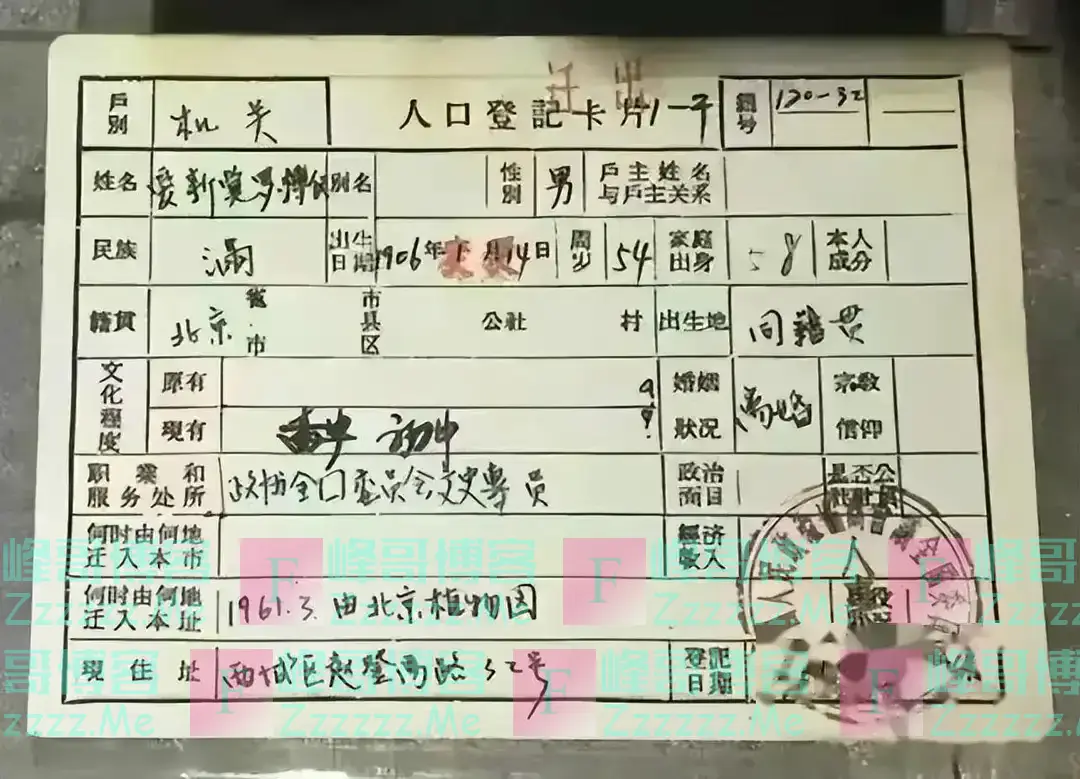 迁出
戶別 机关 人口登記卡片 1-平 編号 120-32
姓名 爱新觉罗·溥仪 别名 性别 男 戶主姓名与戶主关系
民族 满 出生日期 1906年 月14日 周岁 54 家庭出身 本人成分
籍貫 北京 省市 市县区 公社 村 出生地 同籍贯
文化程度 原有 婚姻状况 离婚 宗教信仰
現有 初中
职業和服务处所 政协全囗委员会文史專員 政治面目 是否公社社員
何时由何地迁入本市 經济收入
何时由何地迁入本址 1961.3.由北京植物园
現住址 西城区赵登禹路32号 登記日期
峰哥博客
Zzzzzz.Me
F
峰哥博客
Zzzzzz.Me
F
峰哥博客
Zzzzzz.Me